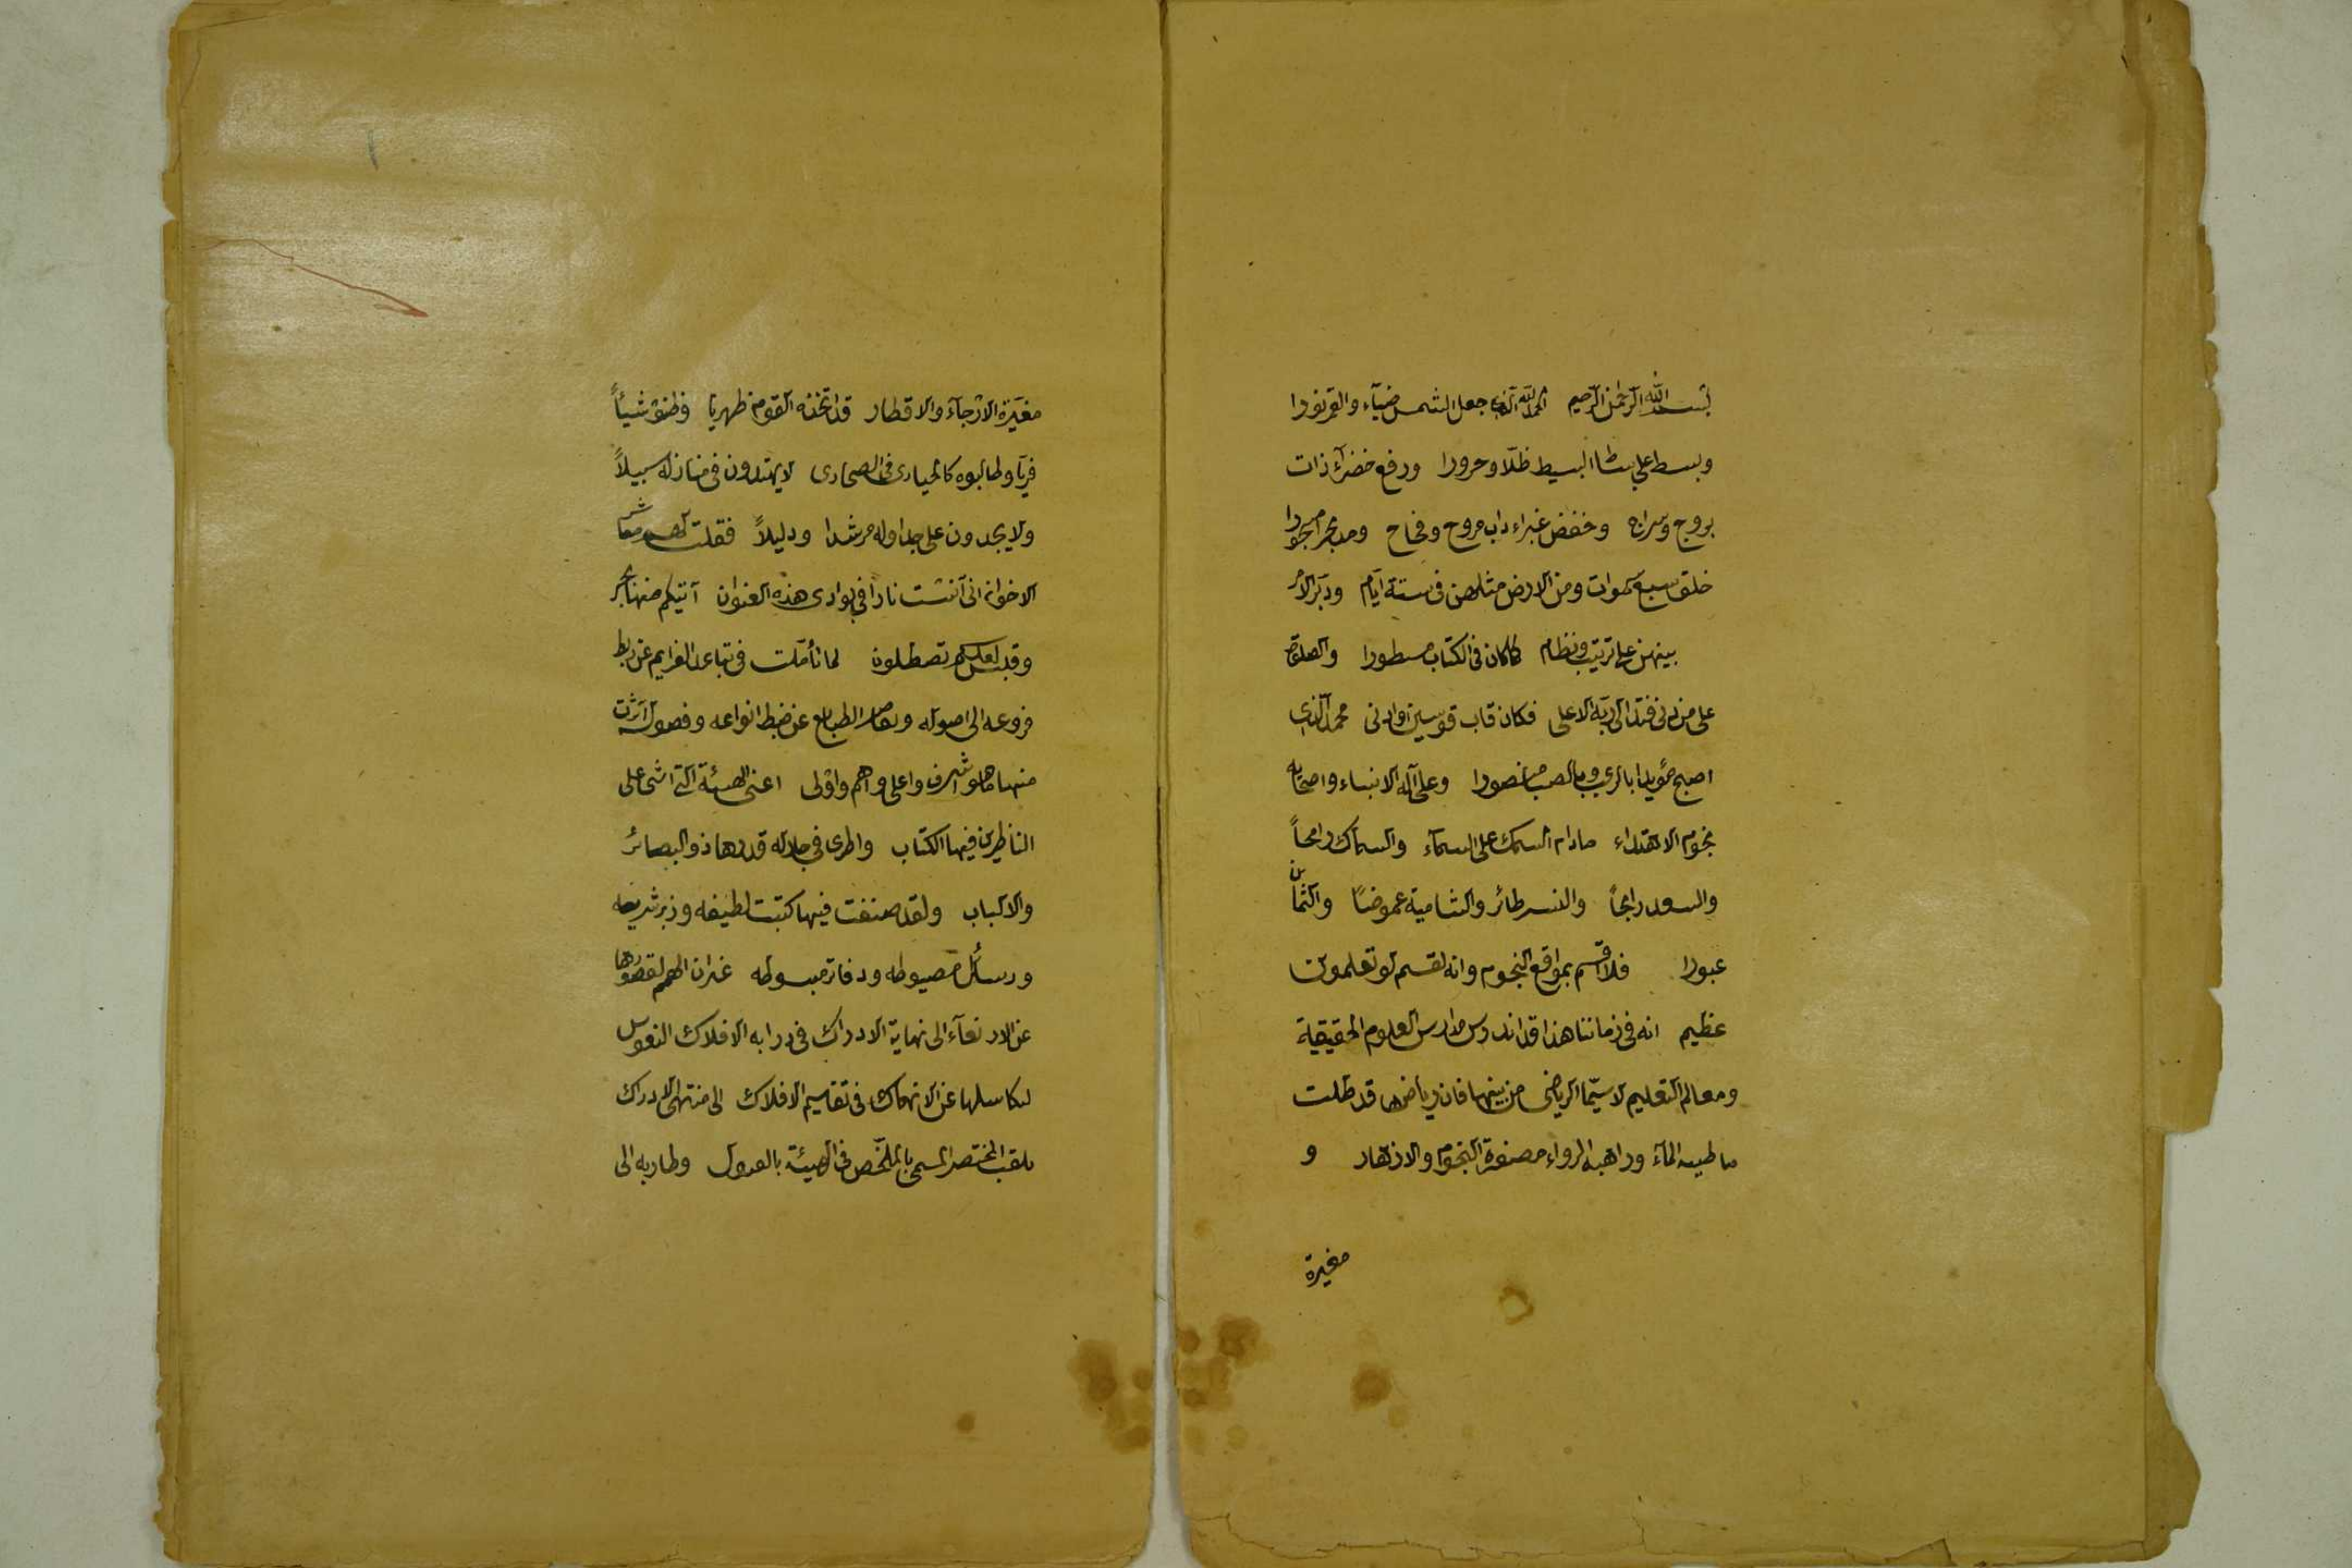 بسم الله الرحمن الرحيم الحمد لله الذى جعل الشمس ضيآء والقمر نورا
وبسط على بساط البسيط ظلّا وحرورا ورفع خضرآء ذات
بروج وسراج وخفض غبراء ذات مروج وفجاج ومد بحرا مسجورا
خلق سبع سموات ومن الارض مثلهن فى ستة ايّام ودبّر الامر
بينهن على ترتيب ونظام كما كان فى الكتاب مسطورا والصلوة
على من دنى فتدلى الى ربّه الاعلى فكان قاب قوسين او ادنى محمد الذى
اصبح مؤيدا بالرعب وبالصبا منصورا وعلى آله الانبياء واصحابه
نجوم الاهتداء مادام السمك على السمآء والسماك رامحاً
والسعد رابحاً والنسر طائر والشامية غموضاً واليمانى
عبورا فلا اقسم بمواقع النجوم وانه لقسم لو تعلمون
عظيم انه فى زماننا هذا قد اندرس مدارس العلوم الحقيقية
ومعالم التعليم لا سيّما الرياضى من بينها فان رياضها قد ظلت
الماء الرواء مصفرة النجوم والازهار و
مغيرة
مغبّرة الارجآء والاقطار قد اتخذه القوم ظهريا وظنوه شيئاً
فريّا وطالبوه كالحيارى فى الصحارى لا يهتدون فى منازله سبيلاً
ولا يجدون على جداوله مرشدا ودليلاً فقلت لهم معاشر
الاخوان انى آنست نارا فى بوادى هذه العنوان آتيكم منها بخبر
وقبس لعلكم تصطلون لما تأملت فى تباعد العزايم عن ربط
فروعه الى اصوله الطبايع عن ضبط انواعه وفصوله آثرت
منها ما هو اشرف واعلى واهم واولى اعنى الهيئة التى اثنى على
الناظرين فيها الكتاب واطرى فى جلاله قدرها ذو البصائر
والالباب ولقد صنفت فيها كتبت لطيفه وزبر شريفه
ورسائل مضبوطه ودفاتر مبسوطه غير ان الهمم لقصورها
عن الارتقآء الى نهاية الادراك فى دراية الافلاك النفوس
لتكاسلها عن الانهماك فى تقاسيم الافلاك الى منتهى الادراك
المختصر المسمى بالملخّص فى الهيئة بالقبول وطار به الى